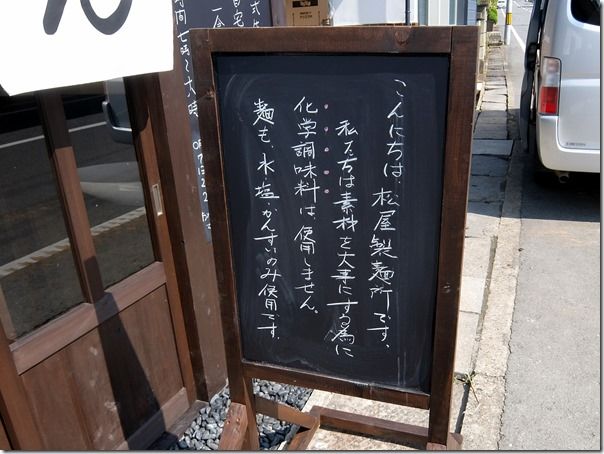 こんにちは、松屋製麺所です、
私たちは素材を大事にする為に
化学調味料は、使用しません。
麺も、水、塩、かんすいのみ使用です。